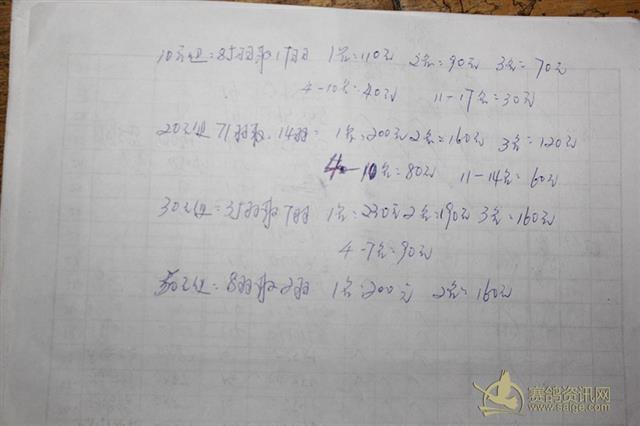 10元组=85羽取17羽 1名=110元 2名=90元 3名=70元
4-10名=40元 11-17名=30元
20元组71羽取14羽= 1名=200元 2名=160元 3名=120元
4-10名=80元 11-14名=60元
30元组=35羽取7羽 1名=230元 2名=190元 3名=160元
4-7名=90元
50元组=8羽取2羽 1名=200元 2名=160元
赛鸽资讯网
www.saige.com